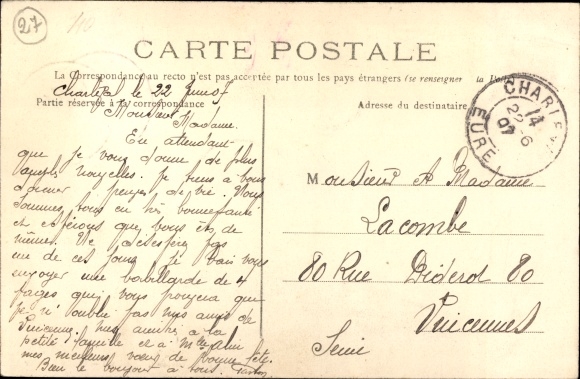 27
CARTE POSTALE
La Correspondance au recto n'est pas acceptée par tous les pays étrangers (se renseigner à la Poste)
Partie réservée à la correspondance
Adresse du destinataire
CHARLEVAL
14
22-6
07
EURE
Charleval le 22 Juin 07
Monsieur
Madame
En attendant
que je vous donne de plus
amples nouvelles. Je tiens à vous
donner preuve de vie. Nous
sommes tous en très bonne santé
et espérons que vous êtes de
même. Ne désespérez pas
un de ces jours je vais vous
envoyer une babillarde de 4
pages que vous pourrez que
je n'oublie pas mes amis de
Vincennes. Mes amitiés à la
petite famille et à
mes meilleurs vœux de bonne fête.
Bien le bonjour à tous.
Monsieur & Madame
Lacombe
80 Rue Diderot 80
Vincennes
Seine